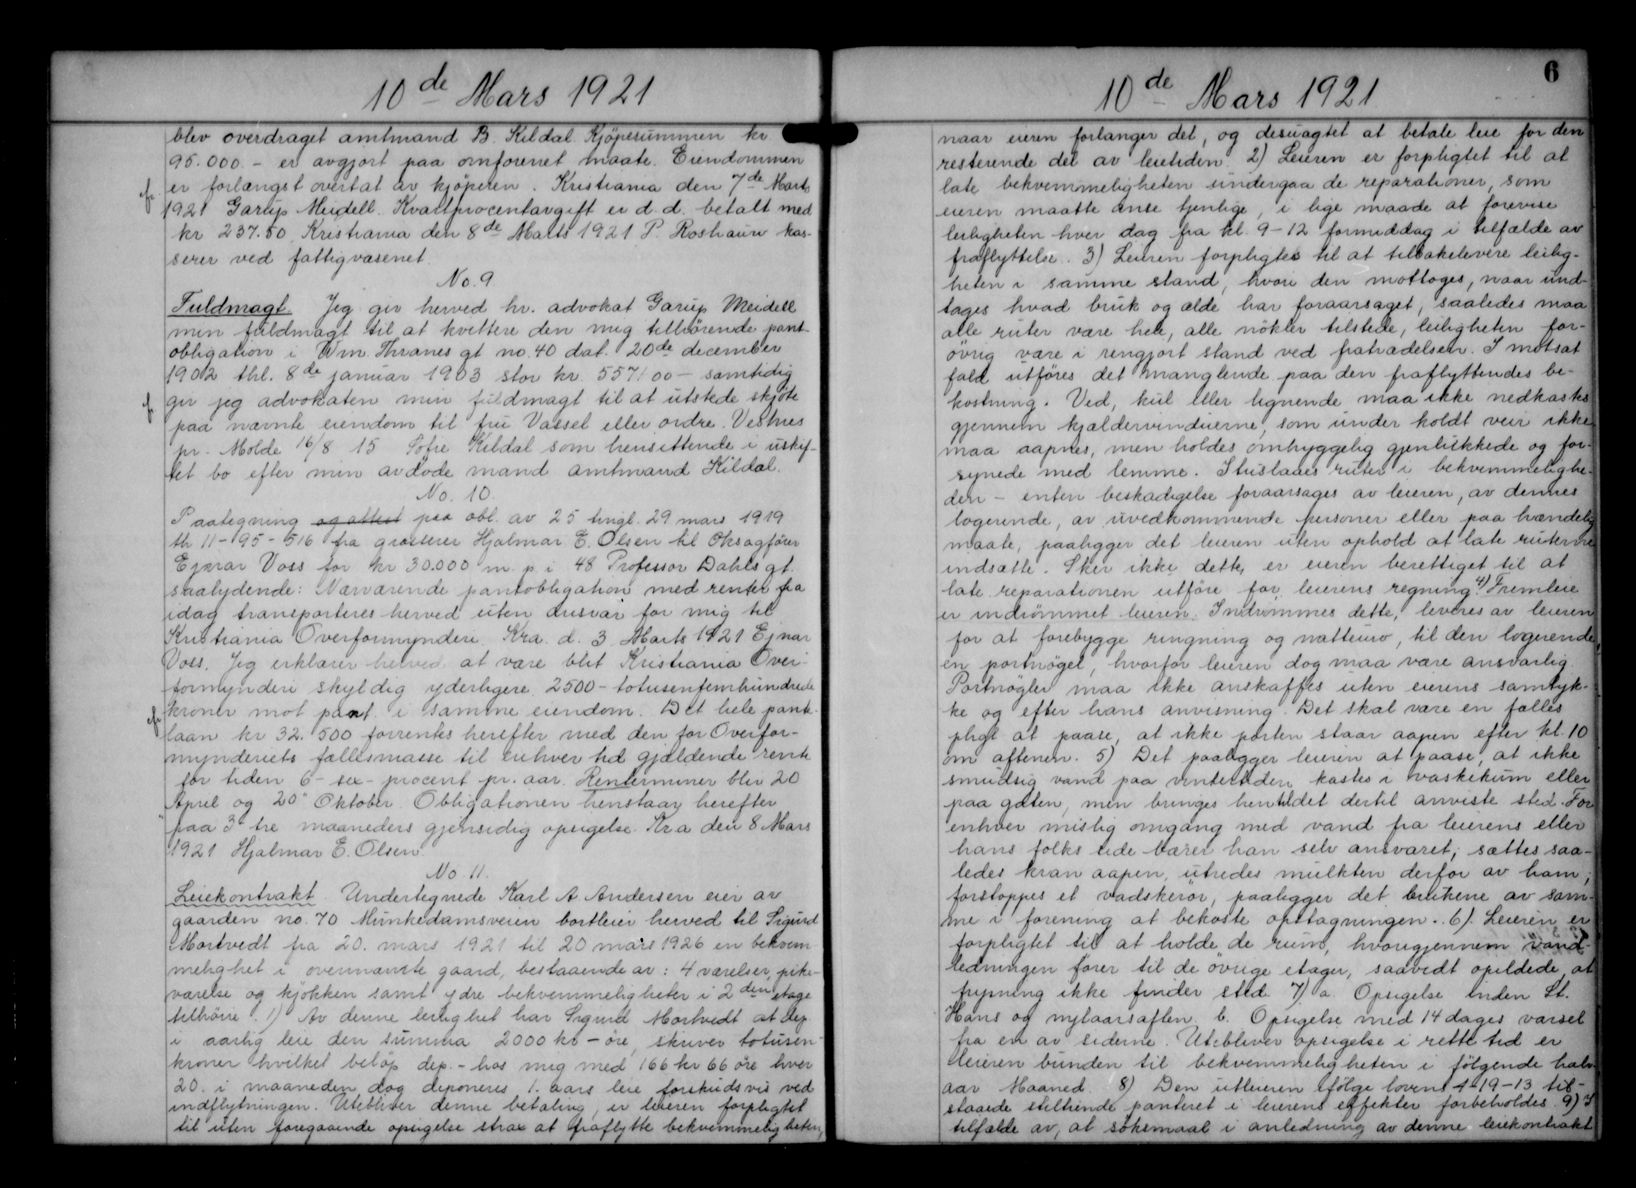 10de Mars 1921
blev overdraget amtmand B. Kildal. Kjöpesummen kr
95.000.- er avgjort paa omforenet maate. Eiendommen
er forlængst overtat av kjöperen. Kristiania den 7de Marts
1921 Garup Meidell. Kvartprocentavgift er d.d. betalt med
kr 237.50 Kristiania den 8de Marts 1921 P. Roshauw kas-
serer ved fattigvæsenet.
No. 9
Fuldmagt. Jeg gir herved hr. advokat Garup Meidell
min fuldmagt til at kvittere den mig tilhörende pant-
obligation i Wm. Thranes gt no. 40 dat. 20de december
1902 thl. 8de januar 1903 stor kr. 55700 - samtidig
gir jeg advokaten min fuldmagt til at utstede skjöte
paa nævnte eiendom til fru Vassel eller ordre. Vestnes
pr. Molde 16/8 15 Sofie Kildal som hensittende i uskif-
tet bo efter min avdöde mand amtmand Kildal.
No. 10.
Paategning og attest paa obl. av 25 tingl. 29 mars 1919
th 11-95-516 fra grosserer Hjalmar E. Olsen til Oksagförer
Ejnar Voss for kr 30.000 m. p. i 48 Professor Dahls gt.
saalydende: Nærværende pantobligation med renter fra
idag transporteres herved uten ansvar for mig til
Kristiania Overformynderi. Kra. d. 3 Marts 1921 Ejnar
Voss. Jeg erklærer herved at være blit Kristiania Over-
formynderi skyldig yderligere 2500 - totusenfemhundrede
kroner mot pant i samme eiendom. Det hele pante-
laan kr 32.500 forrentes herefter med den for Overfor-
mynderiets fællesmasse til enhver tid gjældende rente
for tiden 6 - sex - procent pr. aar. Renterminer blir 20
April og 20 Oktober. Obligationen henstaar herefter
paa 3 tre maaneders gjensidig opsigelse. Kr.a den 8 Mars
1921 Hjalmar E. Olsen.
No. 11.
Leiekontrakt. Undertegnede Karl A Andersen eier av
gaarden no. 70 Munkedamsveien bortleier herved til Sigurd
Mortvedt fra 20. mars 1921 til 20 mars 1926 en bekvem-
melighet i ovennævnte gaard, bestaaende av: 4 værelser, pike-
værelse og kjökken samt ydre bekvemmeligheter i 2den etage
tilhöire. 1) Av denne leilighet har Sigurd Mortvedt at dep.
i aarlig leie den summa 2000 kr - öre, skriver totusen-
kroner hvilket belöp dep. - hos mig med 166 kr 66 öre hver
20. i maaneden dog deponeres 1. aars leie forskudsvis ved
indflytningen. Utebliver denne betaling, er leieren forpligtet
til uten foregaaende opsigelse strax at fraflytte bekvemmeligheten,
10de Mars 1921
6
naar eieren forlanger det, og desuagtet at betale leie for den
resterende del av leietiden. 2) Leieren er forpligtet til at
late bekvemmeligheten undergaa de reparationer, som
eieren maatte anse tjenlige, i lige maade at forevise
leiligheten hver dag fra kl. 9-12 formiddag i tilfælde av
fraflyttelse. 3) Leieren forpligtes til at tilbakelevere leilig-
heten i samme stand, hvori den mottoges, naar und-
tages hvad bruk og ælde har foraarsaget, saaledes maa
alle ruter være hele, alle nökler tilstede, leiligheten for-
övrig være i rengjort stand ved fratrædelsen. I motsat
fald utföres det manglende paa den fraflyttendes be-
kostning. Ved, kul eller lignende maa ikke nedkastes
gjennem kjældervinduerne, som under koldt veir ikke
maa aapnes, men holdes omhyggelig gjenlukkede og for-
synede med lemme. Ituslaaes ruter i bekvemmelighe-
den - enten beskadigelse foraarsages av leieren, av dennes
logerende, av uvedkommende personer eller paa hændelig
maate, paaligger det leieren uten ophold at late ruterne
indsætte. Sker ikke dette, er eieren berettiget til at
late reparationen utföre for leierens regning. 4) Fremleie
er indrömmet leieren. Indrömmes dette, leveres av leieren
for at forebygge ringning og natteuro, til den logerende,
en portnögel, hvorfor leieren dog maa være ansvarlig.
Portnögler maa ikke anskaffes uten eierens samtyk-
ke og efter hans anvisning. Det skal være en fælles
pligt at paase, at ikke porten staar aapen efter kl. 10
om aftenen. 5) Det paaligger leieren at paase, at ikke
smudsig vand paa vintertiden kastes i vaskekum eller
paa gaten, men bringes hentildet dertil anviste sted. For
enhver mislig omgang med vand fra leierens eller
hans folks side bærer han selv ansvaret; sættes saa-
ledes kran aapen, utredes mulkten derfor av ham;
forstoppes et vadskerör, paaligger det brukerne av sam-
me i forening at bekoste optagningen. 6) Leieren er
forpligtet til at holde de rum, hvorigjennem vand-
ledningen förer til de övrige etager, saavidt opildede, at
frysning ikke finder sted. 7) a. Opsigelse inden St.
Hans og nytaarsaften. b. Opsigelse med 14 dages varsel
fra en av siderne. Utebliver opsigelse i rette tid er
leieren bunden til bekvemmeligheten i fölgende halv
aar Maaned. 8) Den utleieren ifölge lovens 4-19-13 til-
staaede stiltiende panteret i leierens effekter forbeholdes. 9) I
tilfælde av, at söksmaal i anledning av denne leiekontrakt